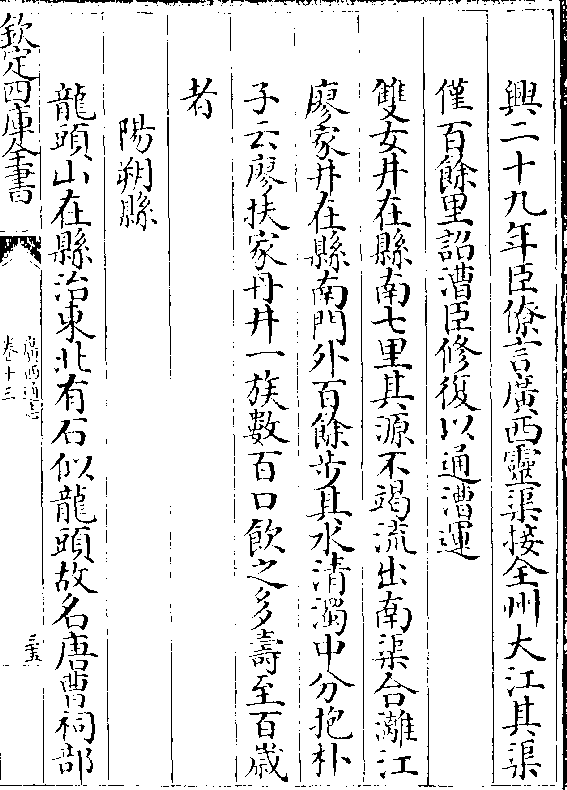 興二十九年臣僚言廣西靈渠接全州大江其渠
僅百餘里詔漕臣修復以通漕運
雙女井在縣南七里其源不竭流出南渠合灕江
廖家井在縣南門外百餘步其水清濁中分抱朴
子云廖扶家丹井一族數百口飲之多壽至百歲
者
陽朔縣
龍頭山在縣治東北有石似龍頭故名唐曹祠部
欽定四庫全書
廣西通志
卷十三
三五